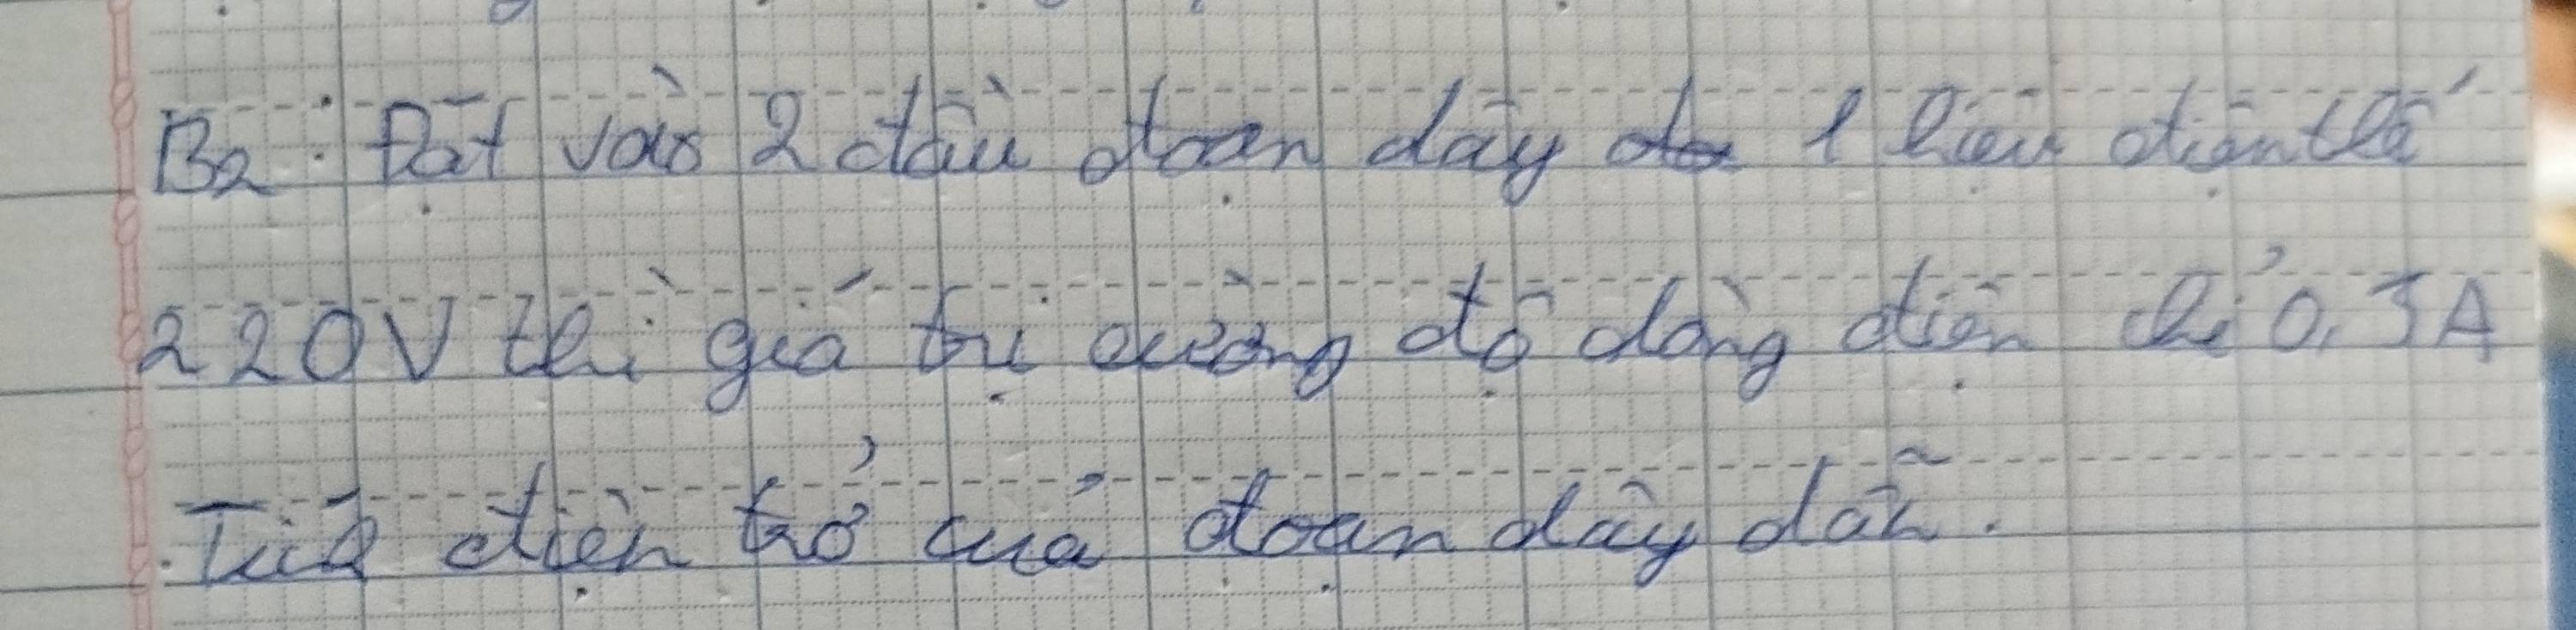 B2: Đặt vào 2 đầu đoạn dây 1 hiệu điện thế
220V thì giá trị cường độ dòng điện chỉ 0,3A
Tính điện trở của đoạn dây dẫn.